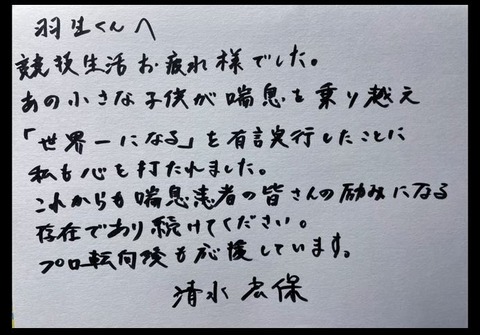 羽生くんへ
競技生活お疲れ様でした。
あの小さな子供が喘息を乗り越え
「世界一になる」を有言実行したことに
私も心を打たれました。
これからも喘息患者の皆さんの励みになる
存在であり続けてください。
プロ転向後も応援しています。
清水宏保